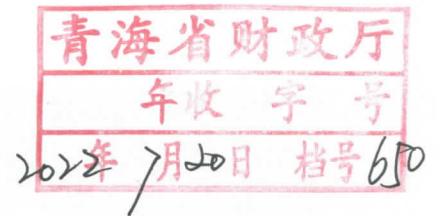 青海省财政厅
年收 字 号
2022年7月20日 档号650